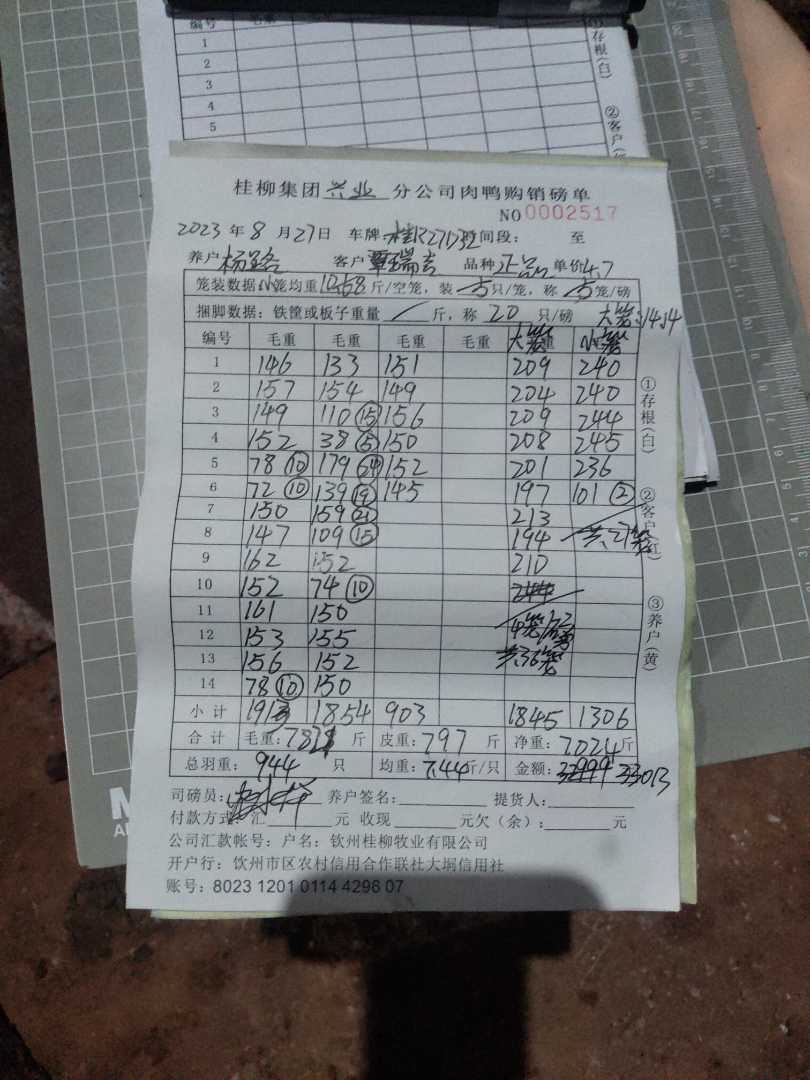 编号
1
2
3
4
5
①存根(白)
②客户
桂柳集团兴业分公司肉鸭购销磅单
NO 0002517
2023年8月27日 车牌 时间段: 至
养户 客户 覃瑞吉 品种 正品 单价 4.7
笼装数据 小笼均重 斤/空笼,装 方只/笼,称 方笼/磅
捆脚数据:铁筐或板子重量 / 斤,称 20 只/磅 大笼:14.14
编号 毛重 毛重 毛重 毛重 大笼 小笼
1 146 133 151 209 240
2 157 154 149 204 240
3 149 110 ⑮ 156 209 244
4 152 38 ⑤ 150 208 245
5 78 ⑩ 179 152 201 236
6 72 ⑩ 139 ⑲ 145 197 101 ②
7 150 159 ㉑ 213
8 147 109 ⑮ 194 共27笼
9 162 152 210
10 152 74 ⑩
11 161 150
12 153 155
13 156 152 共36笼
14 78 ⑩ 150
小计 1913 1854 903 1845 1306
合计 毛重:7821 斤 皮重:797 斤 净重:7024斤
总羽重: 944 只 均重:7.44斤/只 金额: 33013
司磅员: 养户签名: 提货人:
付款方式:汇 元 收现 元欠(余): 元
公司汇款帐号:户名:钦州桂柳牧业有限公司
开户行:钦州市区农村信用合作联社大垌信用社
账号:8023 1201 0114 4296 07
①存根(白)
②客户(红)
③养户(黄)